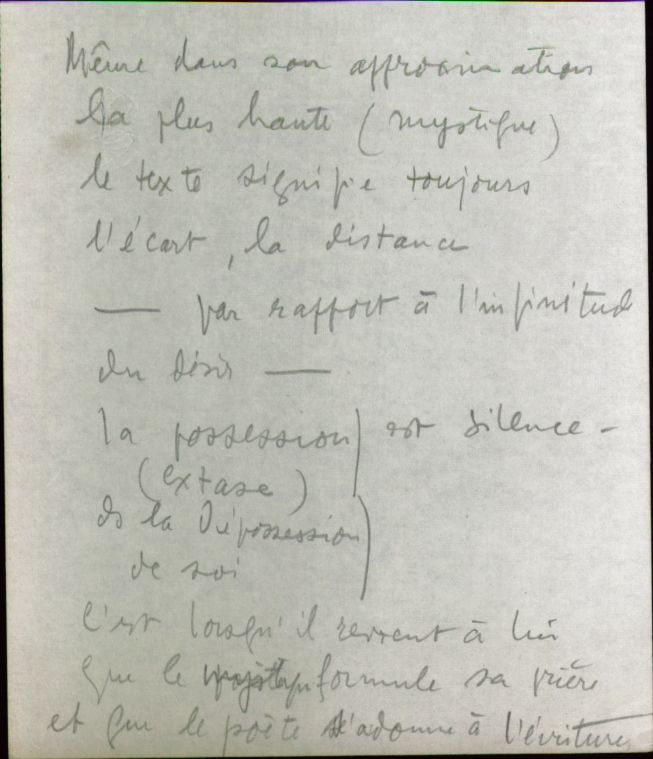 Même dans son approximation
la plus haute (mystique)
le texte signifie toujours
l'écart, la distance
— par rapport à l'infinitude
du désir —
la possession) est silence -
(extase)
ds la dépossession)
de soi
C'est lorsqu'il revient à lui
que le mystique formule sa prière
et que le poète s'adonne à l'écriture